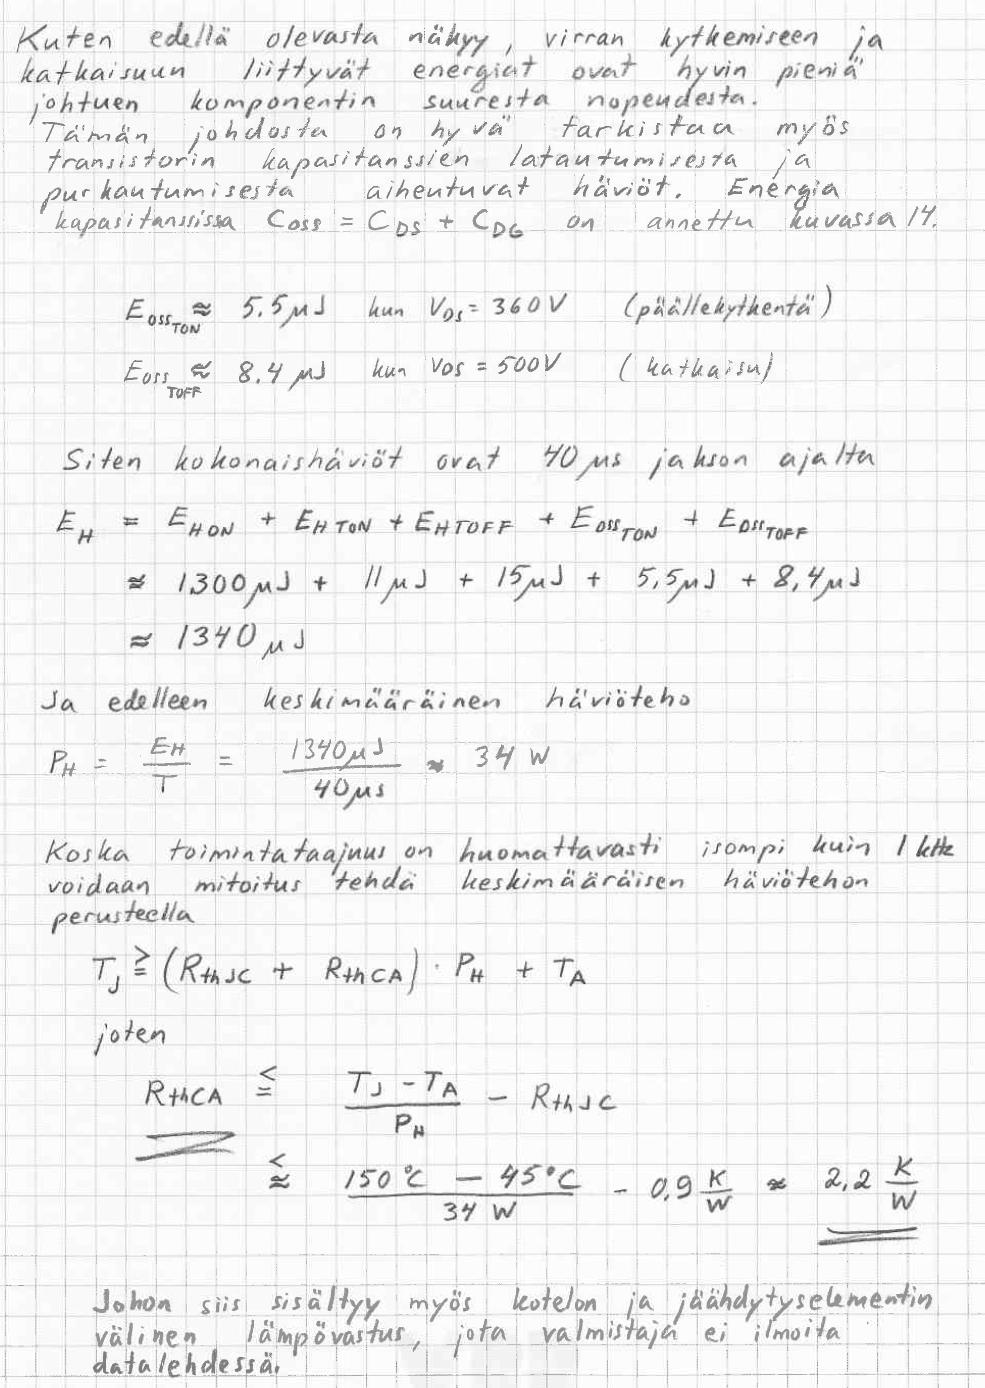 Kuten edellä olevasta näkyy, virran kytkemiseen ja
katkaisuun liittyvät energiat ovat hyvin pieniä
johtuen komponentin suuresta nopeudesta.
Tämän johdosta on hyvä tarkistaa myös
transistorin kapasitanssien latautumisesta ja
purkautumisesta aiheutuvat häviöt. Energia
kapasitanssissa Coss = C_DS + C_DG on annettu kuvassa 14.
E_oss_TON ≈ 5.5 μJ kun V_DS = 360V (päällekytkentä)
E_oss_TOFF ≈ 8.4 μJ kun V_DS = 500V (katkaisu)
Siten kokonaishäviöt ovat 40 μs jakson ajalta
E_H = E_HON + E_HTON + E_HTOFF + E_oss_TON + E_oss_TOFF
≈ 1300 μJ + 11 μJ + 15 μJ + 5,5 μJ + 8,4 μJ
≈ 1340 μJ
Ja edelleen keskimääräinen häviöteho
P_H = E_H / T = 1340 μJ / 40 μs ≈ 34 W
Koska toimintataajuus on huomattavasti isompi kuin 1 kHz
voidaan mitoitus tehdä keskimääräisen häviötehon
perusteella
T_J ≧ (R_thJC + R_thCA) · P_H + T_A
joten
R_thCA ≦ (T_J - T_A) / P_H - R_thJC
≲ (150°C - 45°C) / 34 W - 0,9 K/W ≈ 2,2 K/W
Johon siis sisältyy myös kotelon ja jäähdytyselementin
välinen lämpövastus, jota valmistaja ei ilmoita
datalehdessä.